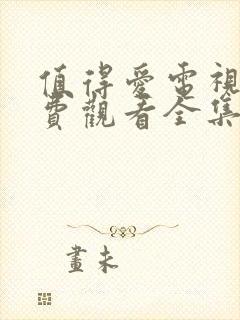 值得愛電視
費觀看全集
畫未